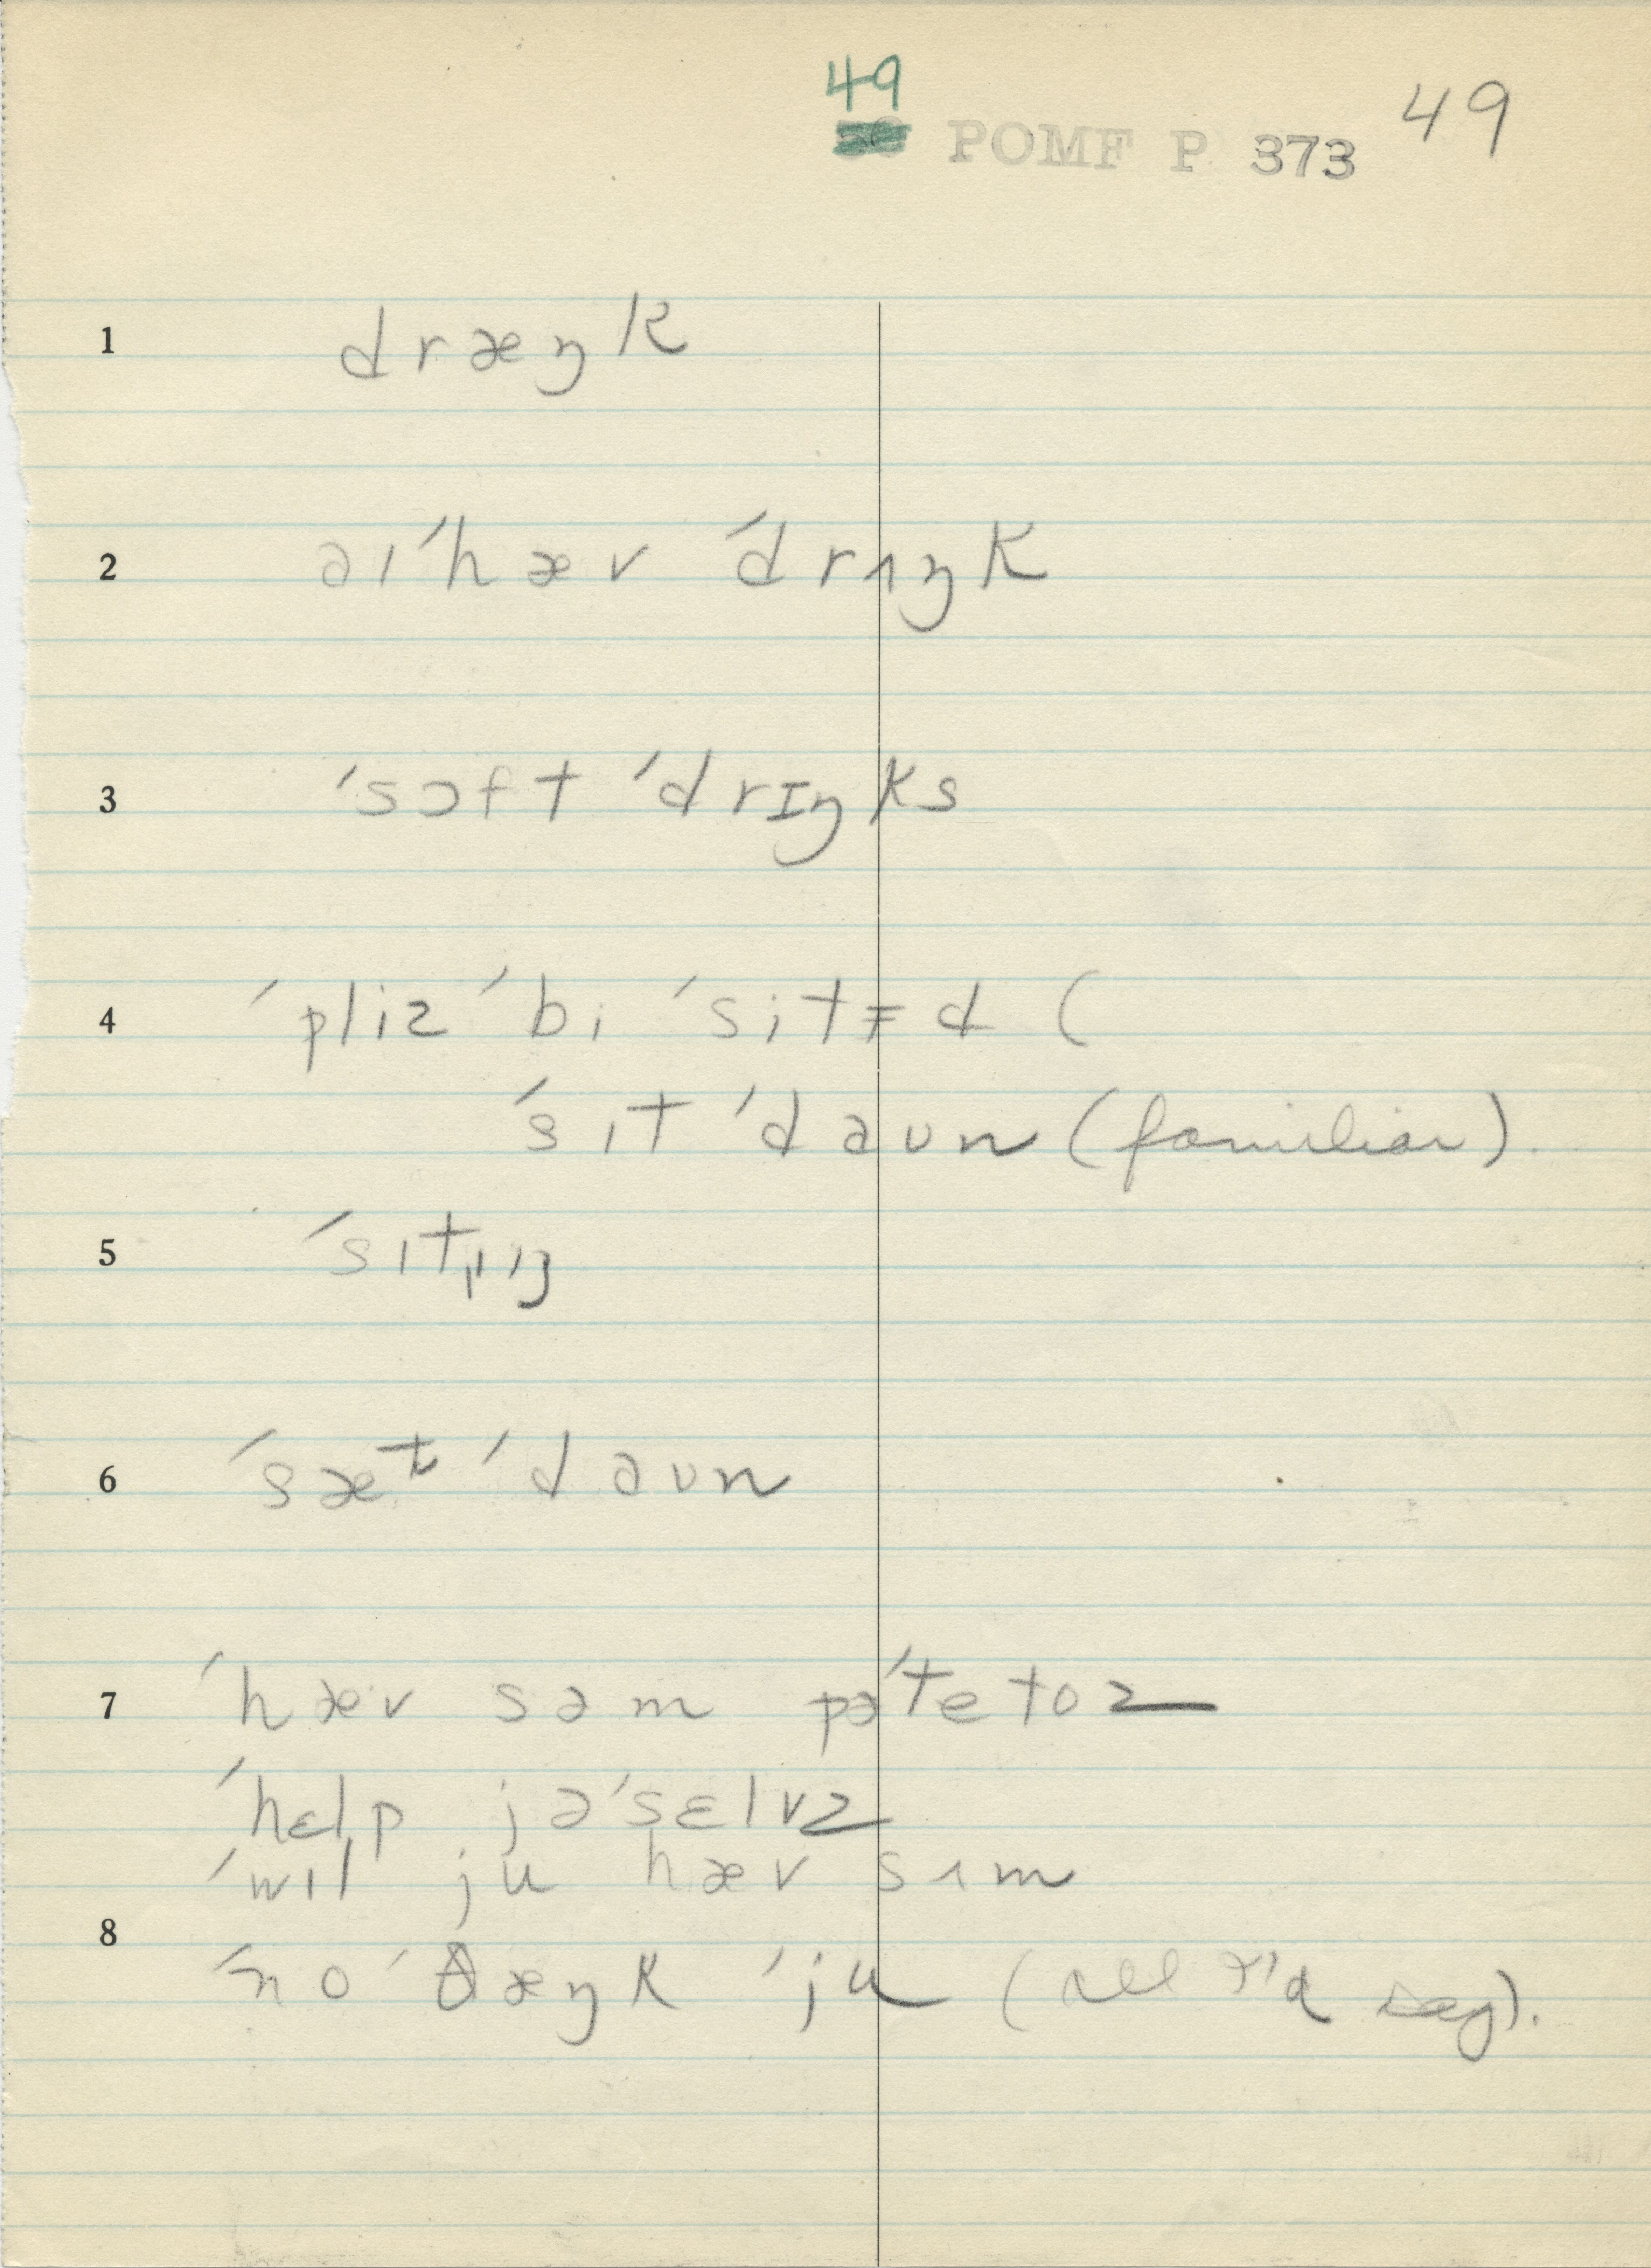 49
POMF P 373 49
1 dræŋk
2 aɪ ˈhæv ˈdrʌŋk
3 ˈsɔft ˈdrɪŋks
4 ˈpliz ˈbi ˈsitɪd (
ˈsɪt ˈdaʊn (familiar).
5 ˈsɪtɪŋ
6 ˈsæt ˈdaʊn
7 ˈhæv səm pəˈtetoz
ˈhɛlp jəˈsɛlvz
ˈwɪl ju hæv sʌm
8 ˈno ˈθæŋk ˈju (all I'd say).